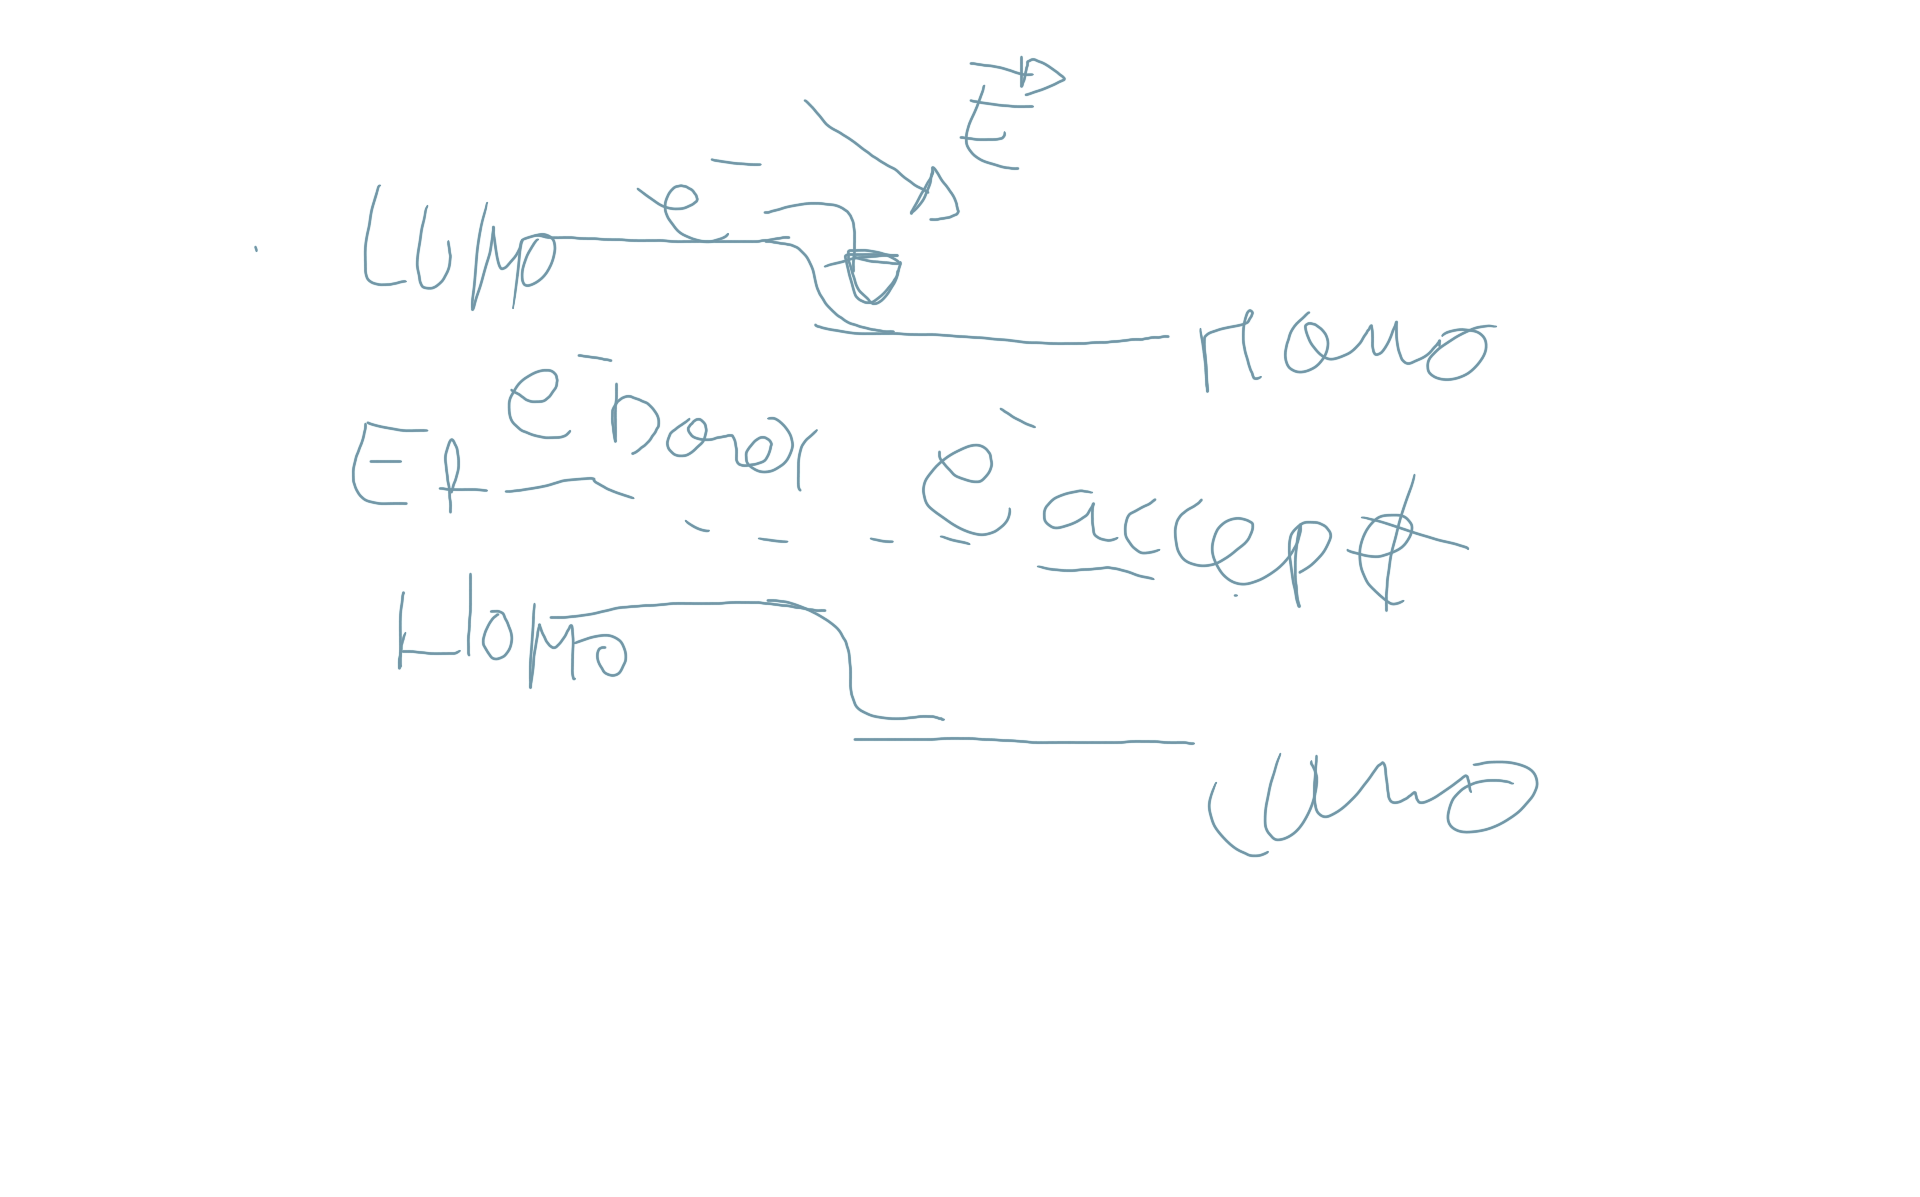 E
LUMO e-
HOMO
Ef e- Donor
e- accept
HOMO
LUMO